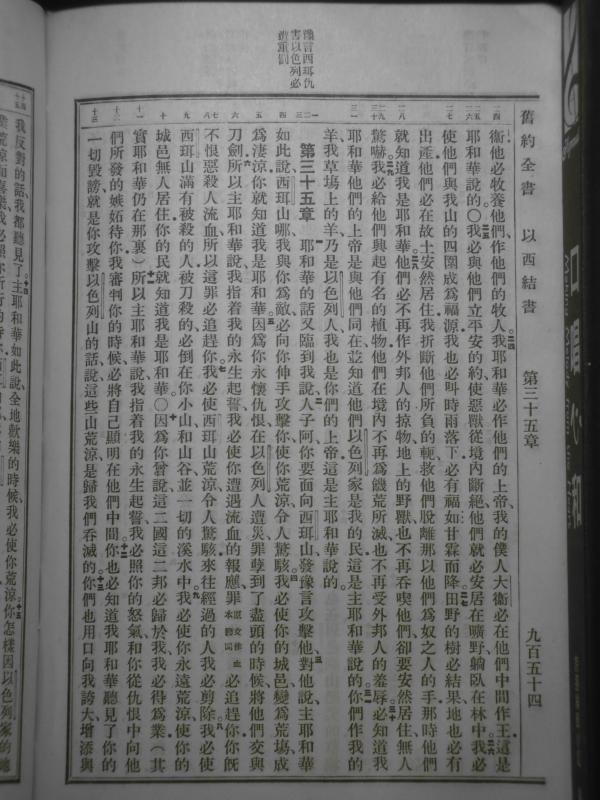 舊約全書　以西結書　第三十五章　九百五十四
豫言西珥仇
害以色列必
遭重罰
衞他必牧養他們作他們的牧人我耶和華必作他們的上帝我的僕人大衞必在他們中間作王這是
耶和華說的〇我必與他們立平安的約使惡獸從境內斷絕他們就必安居在曠野躺臥在林中我必
使他們與我山的四圍成為福源我也必叫時雨落下必有福如甘霖而降田野的樹必結果地也必有
出產他們必在故土安然居住我折斷他們所負的軛救他們脫離那以他們為奴之人的手那時他們
就知道我是耶和華他們必不再作外邦人的掠物地上的野獸也不再吞喫他們卻要安然居住無人
驚嚇我必給他們興起有名的植物他們在境內不再為饑荒所滅也不再受外邦人的羞辱必知道我
耶和華他們的上帝是與他們同在並知道他們以色列家是我的民這是主耶和華說的你們作我的
羊我草場上的羊乃是以色列人我也是你們的上帝這是主耶和華說的
第三十五章　耶和華的話又臨到我說人子阿你要面向西珥山發豫言攻擊他對他說主耶和華
如此說西珥山哪我與你為敵必向你伸手攻擊你使你荒涼令人驚駭我必使你的城邑變為荒場成
為淒涼你就知道我是耶和華因為你永懷仇恨在以色列人遭災罪孽到了盡頭的時候將他們交與
刀劍所以主耶和華說我指着我的永生起誓我必使你遭遇流血的報應罪原文作血本節同必追趕你你既
不恨惡殺人流血所以這罪必追趕你我必使西珥山荒涼令人驚駭來往經過的人我必剪除我必使
西珥山滿有被殺的人被刀殺的必倒在你小山和山谷並一切的溪水中我必使你永遠荒涼使你的
城邑無人居住你的民就知道我是耶和華〇因為你曾說這二國這二邦必歸於我我必得為業（其
實耶和華仍在那裏）所以主耶和華說我指着我的永生起誓我必照你的怒氣和你從仇恨中向他
們所發的嫉妒待你我審判你的時候必將自己顯明在他們中間你也必知道我耶和華聽見了你的
一切毀謗就是你攻擊以色列山的話說這些山荒涼是歸我們吞滅的你們也用口向我誇大增添與
我反對的話我都聽見了主耶和華如此說全地歡樂的時候我必使你荒涼你怎樣因以色列家的地